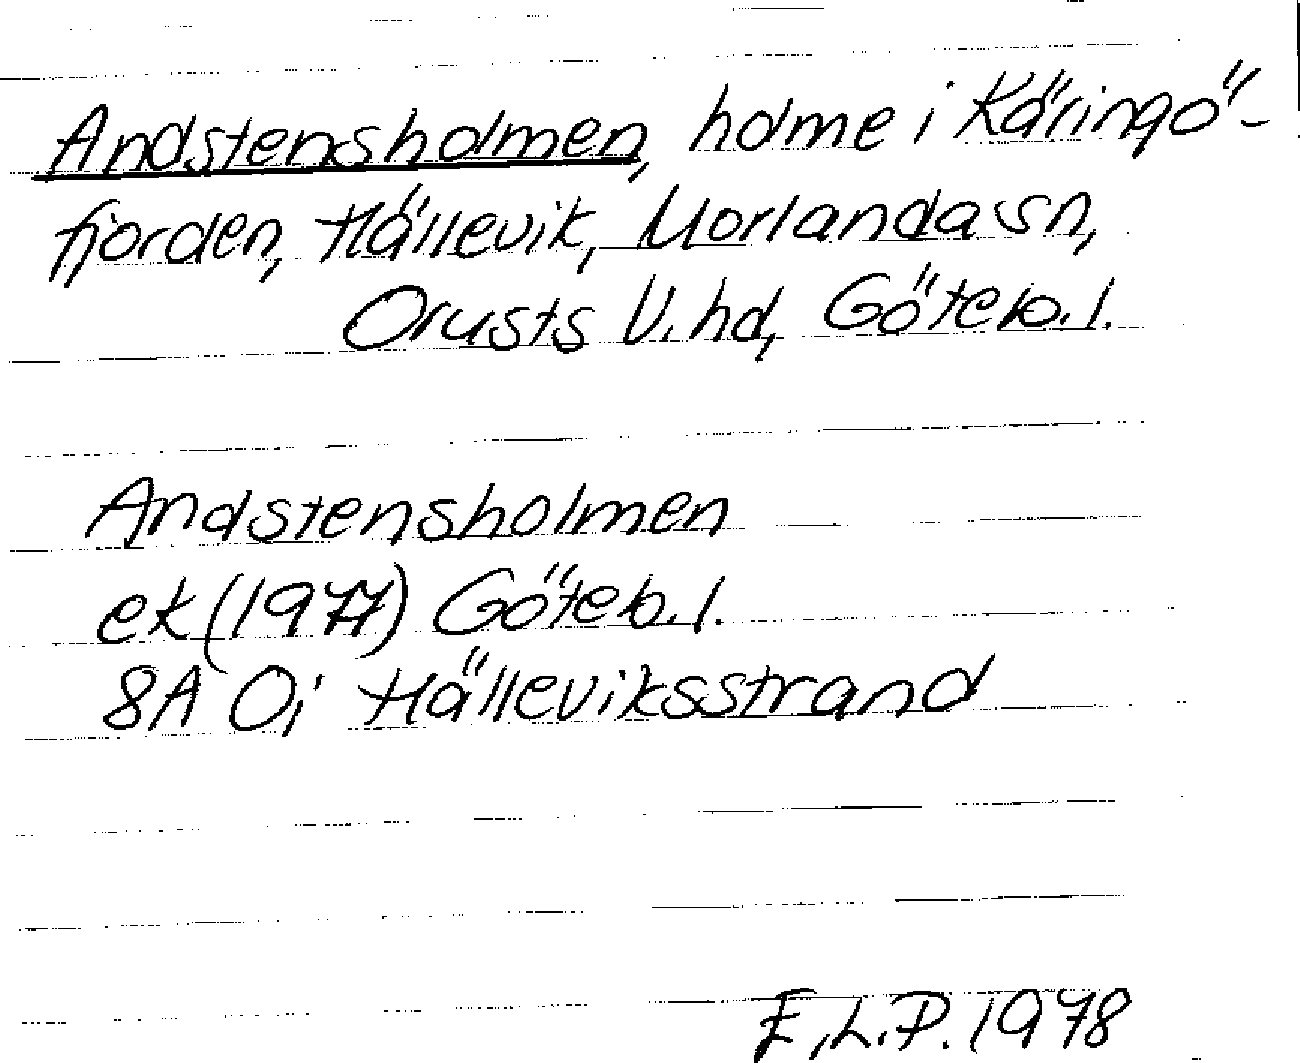 Andstensholmen, holme i Käringö-
fjorden, Hällevik, Morlanda sn,
Orusts V. hd, Göteb. l.
Andstensholmen
ek (1977) Göteb. l.
8A 0i Hälleviksstrand
E.L.P. 1978